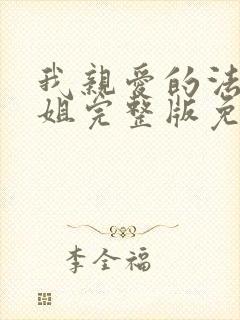 我亲爱的法
姐完整版免
李全福